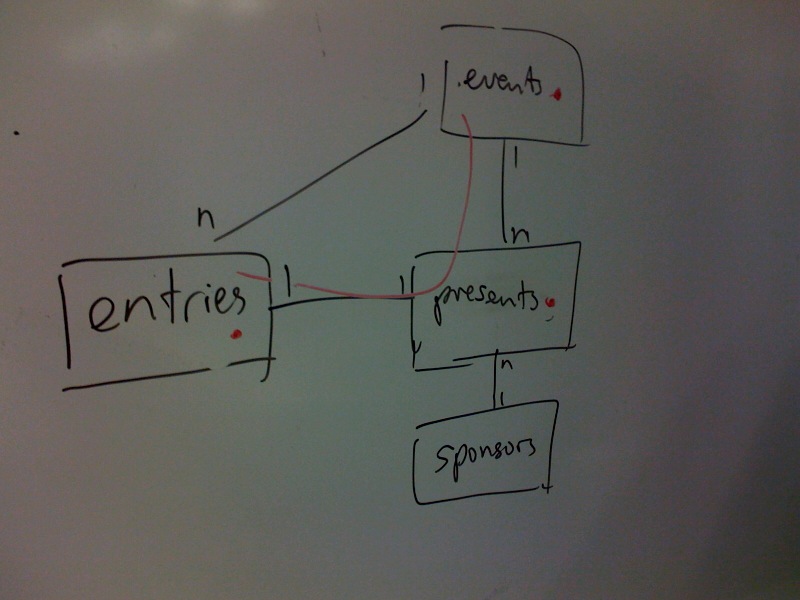 1
events
1
n
n
entries
1
1
presents
n
1
sponsors